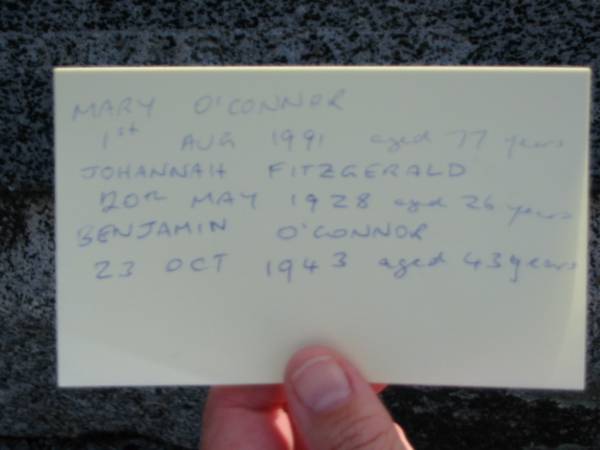 MARY O'CONNOR
1st AUG 1991 aged 77 years
JOHANNAH FITZGERALD
20th MAY 1928 aged 26 years
BENJAMIN O'CONNOR
23 OCT 1943 aged 43 years